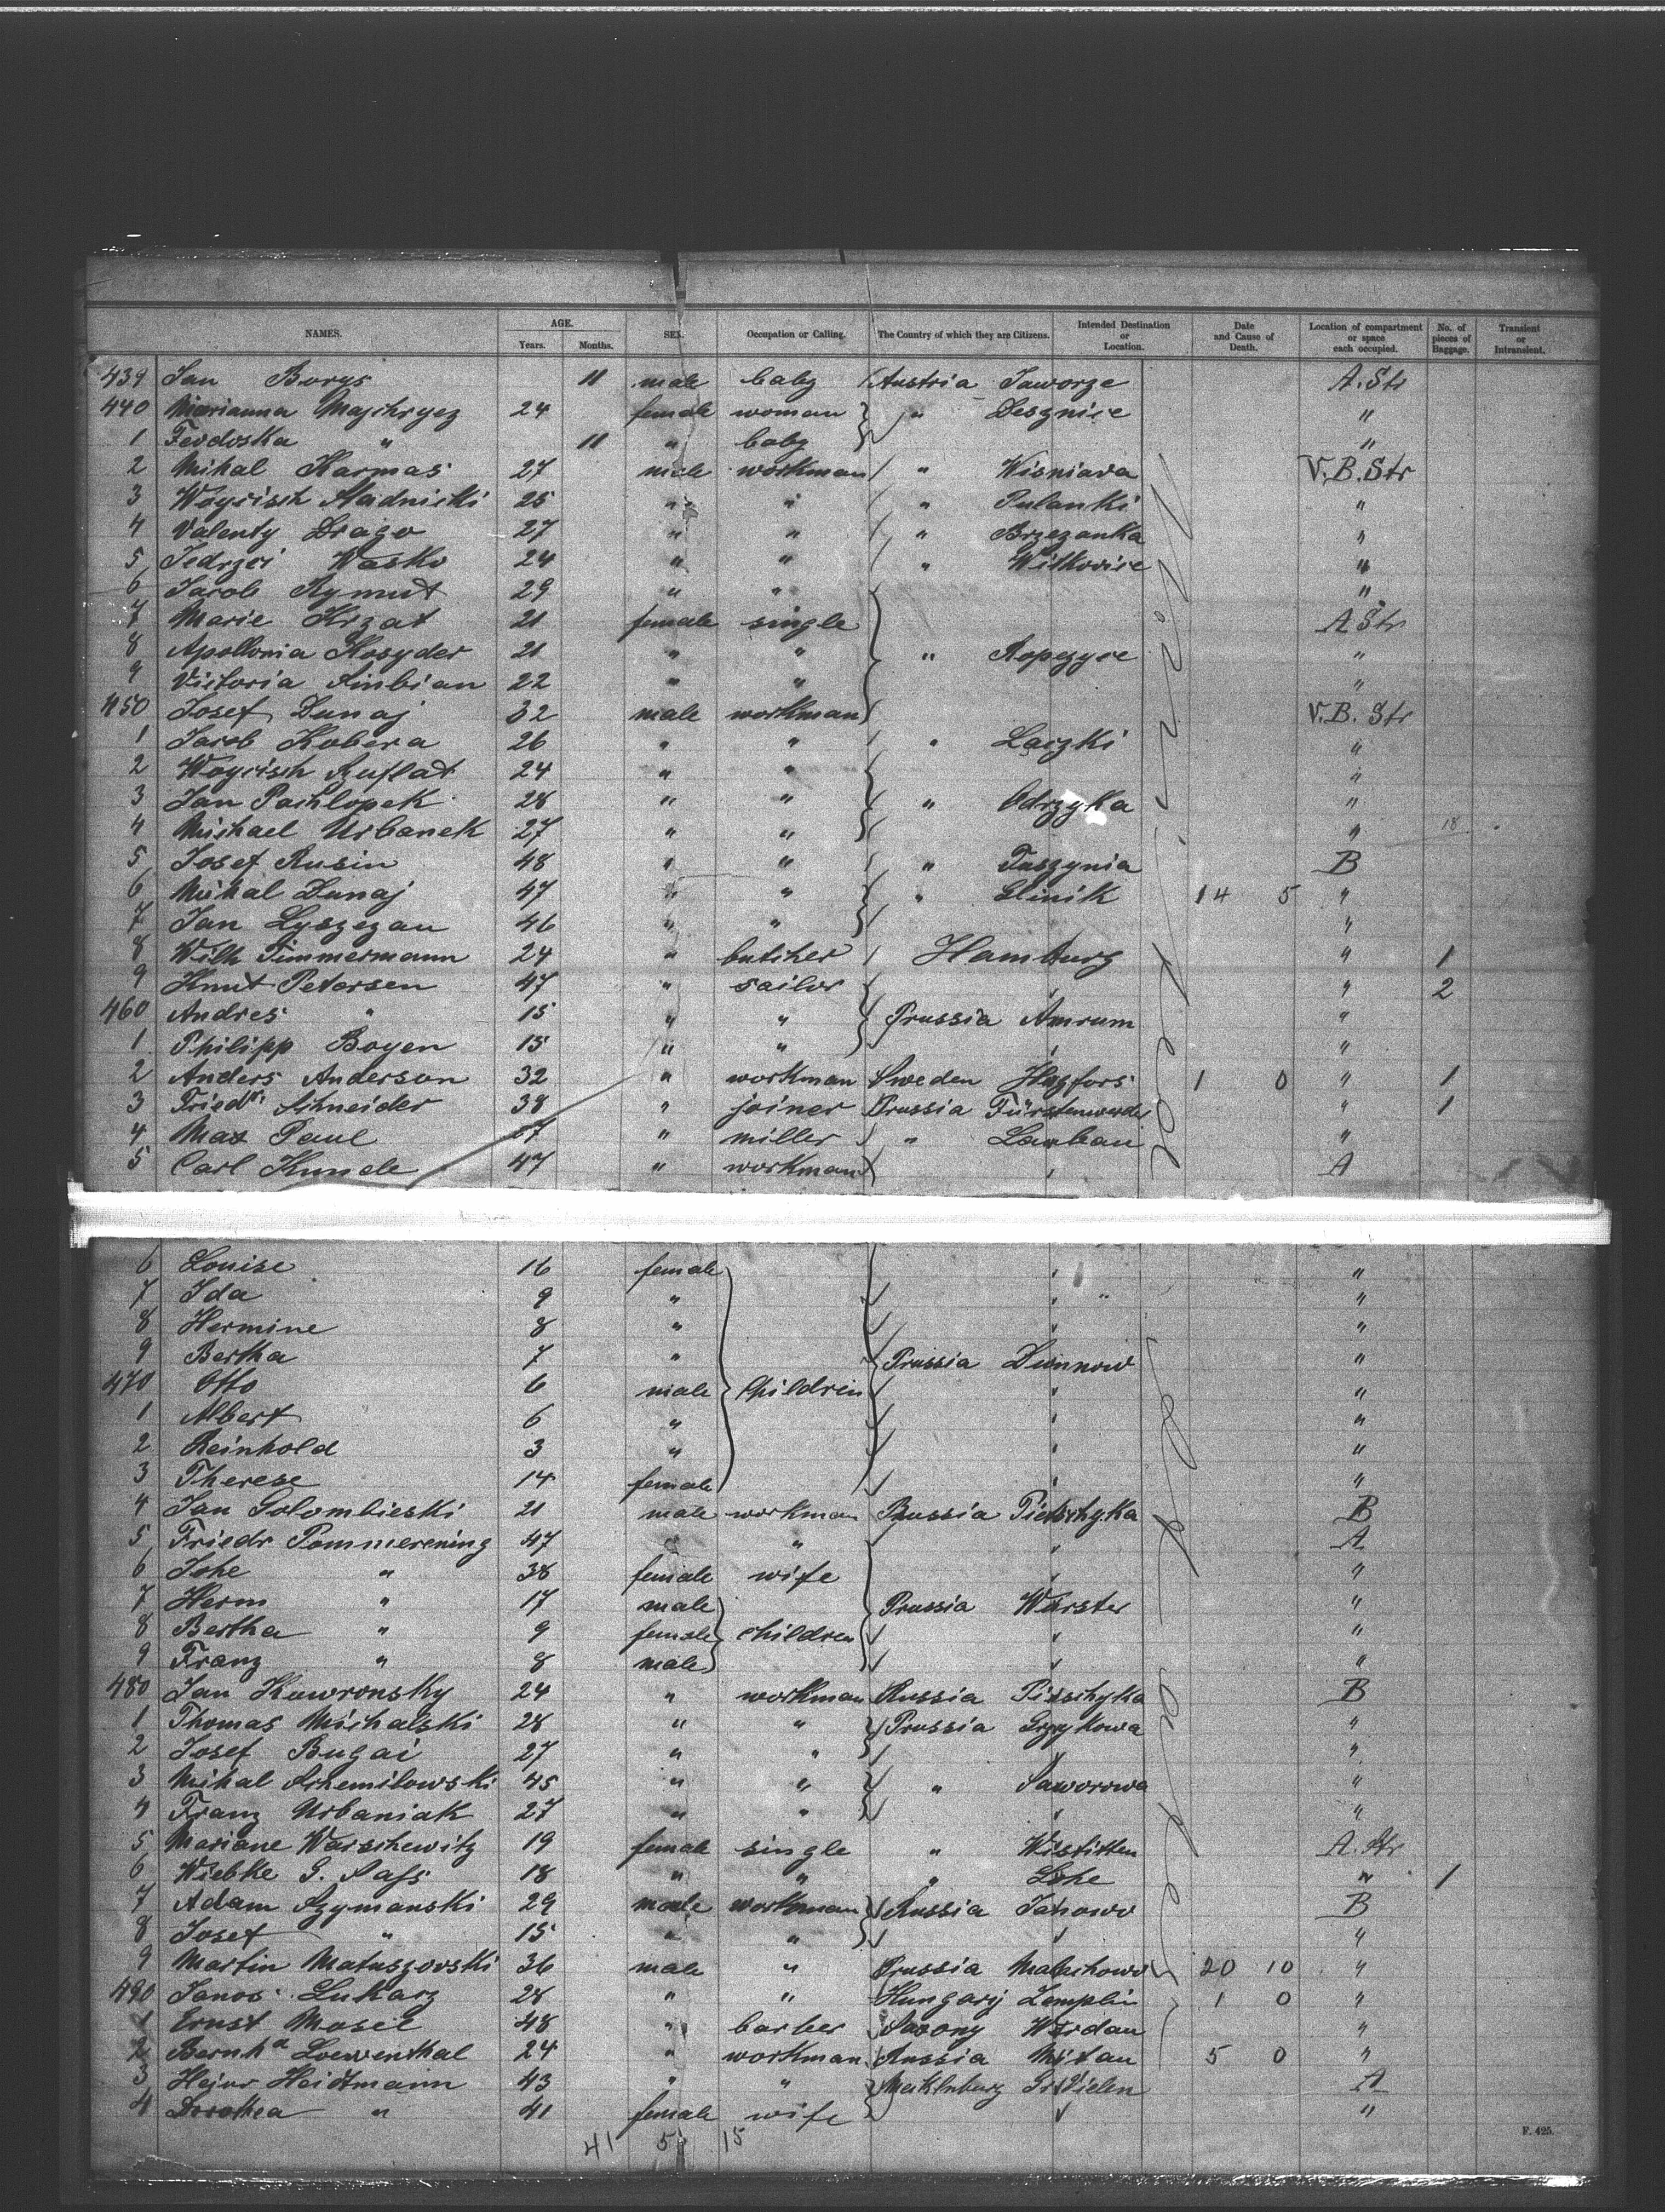 NAMES. AGE. Years. Months. SEX. Occupation or Calling. The Country of which they are Citizens. Intended Destination or Location. Date and Cause of Death. Location of compartment or space each occupied. No. of pieces of Baggage. Transient or Intransient.
439 Jan Borys 11 male baby Austria Jaworze A. Str
440 Marianna Majchrycz 24 female woman " Desznice "
1 Feodoska " 11 " baby "
2 Mihal Karmas 27 male workman " Wisniava V. B. Str
3 Woycisch Stadnicki 25 " " " Pulanki "
4 Valenty Drago 27 " " " Brzezanka "
5 Jedrzei Wasko 24 " " " Witkovice "
6 Jacob Rymut 29 " " "
7 Marie Krzat 21 female single A Str
8 Apollonia Kosyder 21 " " " Ropczyce "
9 Victoria 22 " " "
450 Josef Dunaj 32 male workman V. B. Str
1 Jacob Kobera 26 " " " Laczki "
2 Woycisch Szuflat 24 " " "
3 Jan Pachlopek 28 " " " Odrzyka "
4 Michael Urbanek 27 " " " 18
5 Josef Rusin 48 " " " Tuszynia B
6 Mihal Dunaj 47 " " " Glinik 14 5 "
7 Jan Lyszczau 46 " " "
8 Wilh Timmermann 24 " butcher Hamburg " 1
9 Knut Petersen 47 " sailor " 2
460 Andres " 15 " " Prussia Amrum "
1 Philipp Boyen 15 " " "
2 Anders Anderson 32 " workman Sweden Hagfors 1 0 " 1
3 Friedr. Schneider 38 " joiner Prussia Fürstenwerder " 1
4 Max Paul 17 " miller " Lauban "
5 Carl Kunde 47 " workman A
6 Louise 16 female "
7 Ida 9 " "
8 Hermine 8 " "
9 Bertha 7 " Prussia Dünnow "
470 Otto 6 male Children "
1 Albert 6 " "
2 Reinhold 3 " "
3 Therese 14 female "
4 Jan Golombieski 21 male workman Russia Pietschyka B
5 Friedr Pommerening 47 " " A
6 Johe " 38 female wife "
7 Herm " 17 male Prussia Wurster "
8 Bertha " 9 female children "
9 Franz " 8 male "
480 Jan Kowronsky 24 " workman Russia Pisschyka B
1 Thomas Michalski 28 " " Prussia Grzykowa "
2 Josef Bugai 27 " " "
3 Mihal Schemilowski 45 " " " Saworowa "
4 Franz Urbaniak 27 " " "
5 Mariane Warschewitz 19 female single " Wistitten A. Str
6 Wiebke G. Sass 18 " " " Lohe " 1
7 Adam Szymanski 29 male workman Russia Janowo B
8 Josef " 15 " " "
9 Martin Matuszovski 36 male " Prussia Malachowo 20 10 "
490 Janos Lukacz 28 " " Hungary Zemplin 1 0 "
1 Ernst Mosel 48 " barber Saxony Werdau "
2 Bernhd Loewenthal 24 " workman Russia Mitau 5 0 "
3 Hejnr Heidtmann 43 " " Mecklnburg Gr Vielen A
4 Dorothea " 41 female wife "
41 5 15
F. 425.